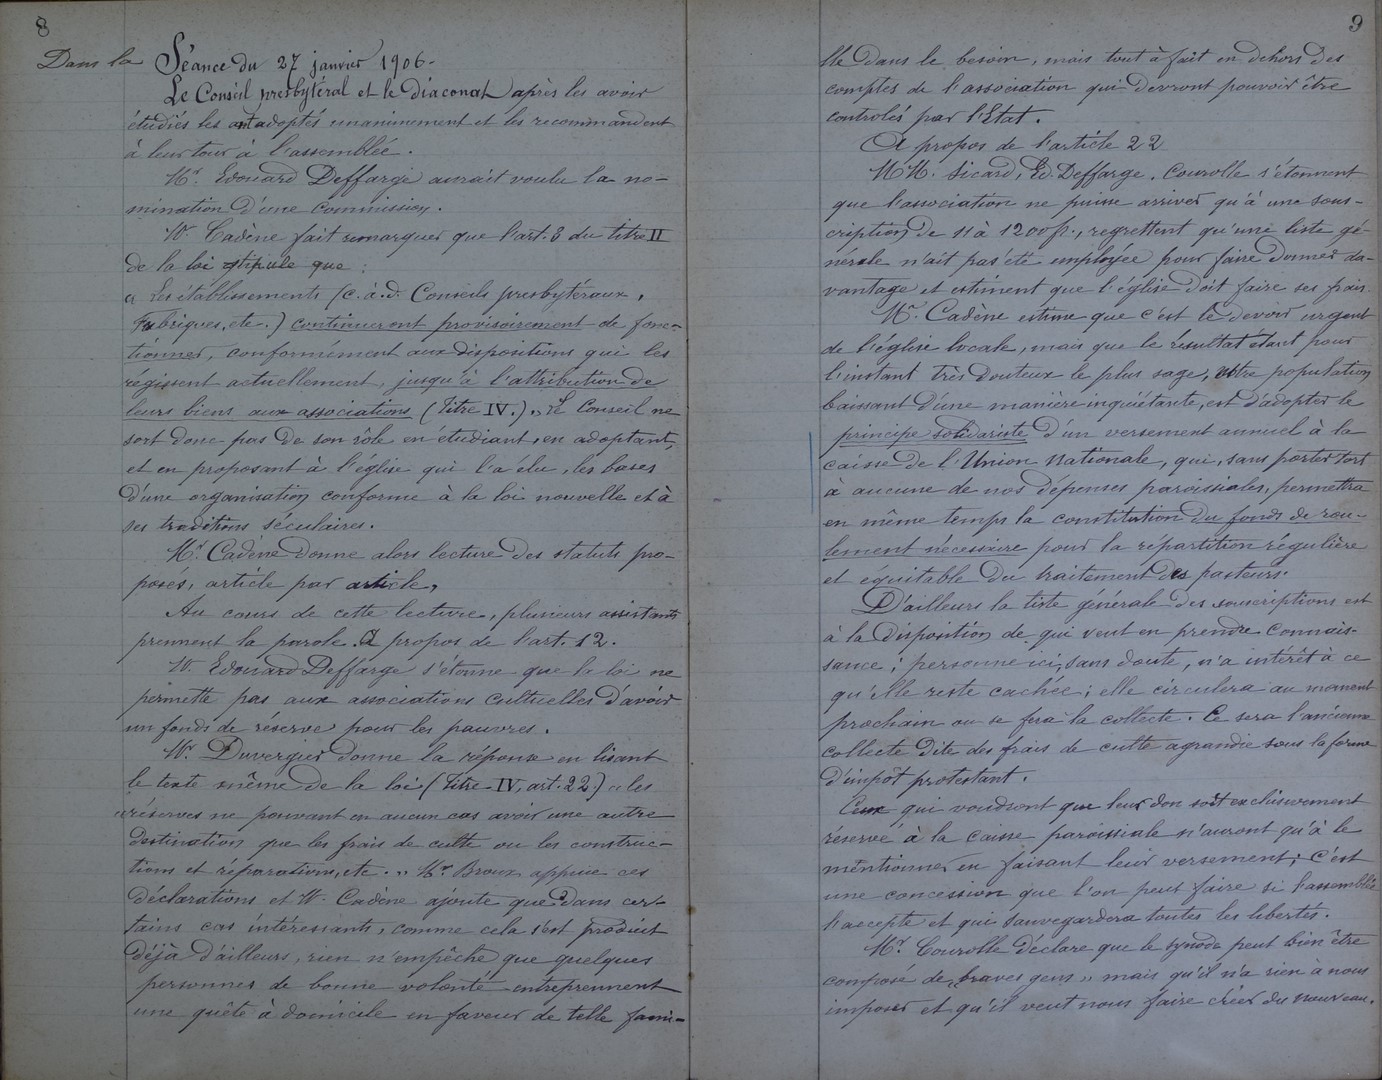 8
Dans la Séance du 27 janvier 1906-
Le Conseil presbytéral et le diaconat après les avoir
étudiés les ont adoptés unanimement et les recommandent
à leur tour à l'assemblée.
Mr. Edouard Deffarge aurait voulu la no-
mination d'une commission.
Mr. Cadène fait remarquer que l'art. 3 du titre II
de la loi stipule que :
« Les établissements (c. à. d. Conseils presbytéraux,
Fabriques, etc.) continueront provisoirement de fonc-
tionner, conformément aux dispositions qui les
régissent actuellement, jusqu'à l'attribution de
leurs biens aux associations (titre IV.) » Le Conseil ne
sort donc pas de son rôle en étudiant, en adoptant,
et en proposant à l'église qui l'a élu, les bases
d'une organisation conforme à la loi nouvelle et à
ses traditions séculaires.
Mr. Cadène donne alors lecture des statuts pro-
posés, article par article,
Au cours de cette lecture, plusieurs assistants
prennent la parole. A propos de l'art. 12.
Mr. Edouard Deffarge s'étonne que la loi ne
permette pas aux associations cultuelles d'avoir
un fonds de réserve pour les pauvres.
Mr. Duvergier donne la réponse en lisant
le texte même de la loi (Titre IV, art. 22.) « les
« réserves ne pouvant en aucun cas avoir une autre
destination que les frais de culte ou les construc-
tions et réparations, etc. » Mr. Broux appuie ces
déclarations et Mr. Cadène ajoute que dans cer-
tains cas intéressants, comme cela s'est produit
déjà d'ailleurs, rien n'empêche que quelques
personnes de bonne volonté entreprennent
une quête à domicile en faveur de telle fami-
9
lle dans le besoin, mais tout à fait en dehors des
comptes de l'association qui devront pouvoir être
controlés par l'Etat.
A propos de l'article 22
MM. Sicard, Ed. Deffarge, Courolle s'étonnent
que l'association ne puisse arriver qu'à une sous-
cription de 11 à 1200 f., regrettent qu'une liste gé-
nérale n'ait pas été employée pour faire donner da-
vantage et estiment que l'église doit faire ses frais.
Mr. Cadène estime que c'est le devoir urgent
de l'église locale, mais que le résultat étant pour
l'instant très douteux le plus sage, notre population
baissant d'une manière inquiétante, est d'adopter le
principe solidariste d'un versement annuel à la
caisse de l'Union Nationale, qui, sans porter tort
à aucune de nos dépenses paroissiales, permettra
en même temps la constitution du fonds de rou-
lement nécessaire pour la répartition régulière
et équitable du traitement des pasteurs.
D'ailleurs la liste générale des souscriptions est
à la disposition de qui veut en prendre connais-
sance; personne ici, sans doute, n'a intérêt à ce
qu'elle reste cachée; elle circulera au moment
prochain ou se fera la collecte. Ce sera l'ancienne
collecte dite des frais de culte agrandie sous la forme
d'impôt protestant.
Ceux qui voudront que leur don soit exclusivement
réservé à la caisse paroissiale n'auront qu'à le
mentionner en faisant leur versement; c'est
une concession que l'on peut faire si l'assemblée
l'accepte et qui sauvegardera toutes les libertés.
Mr. Courolle déclare que le synode peut bien être
composé de « braves gens » mais qu'il n'a rien à nous
imposer et qu'il veut nous faire créer du nouveau.